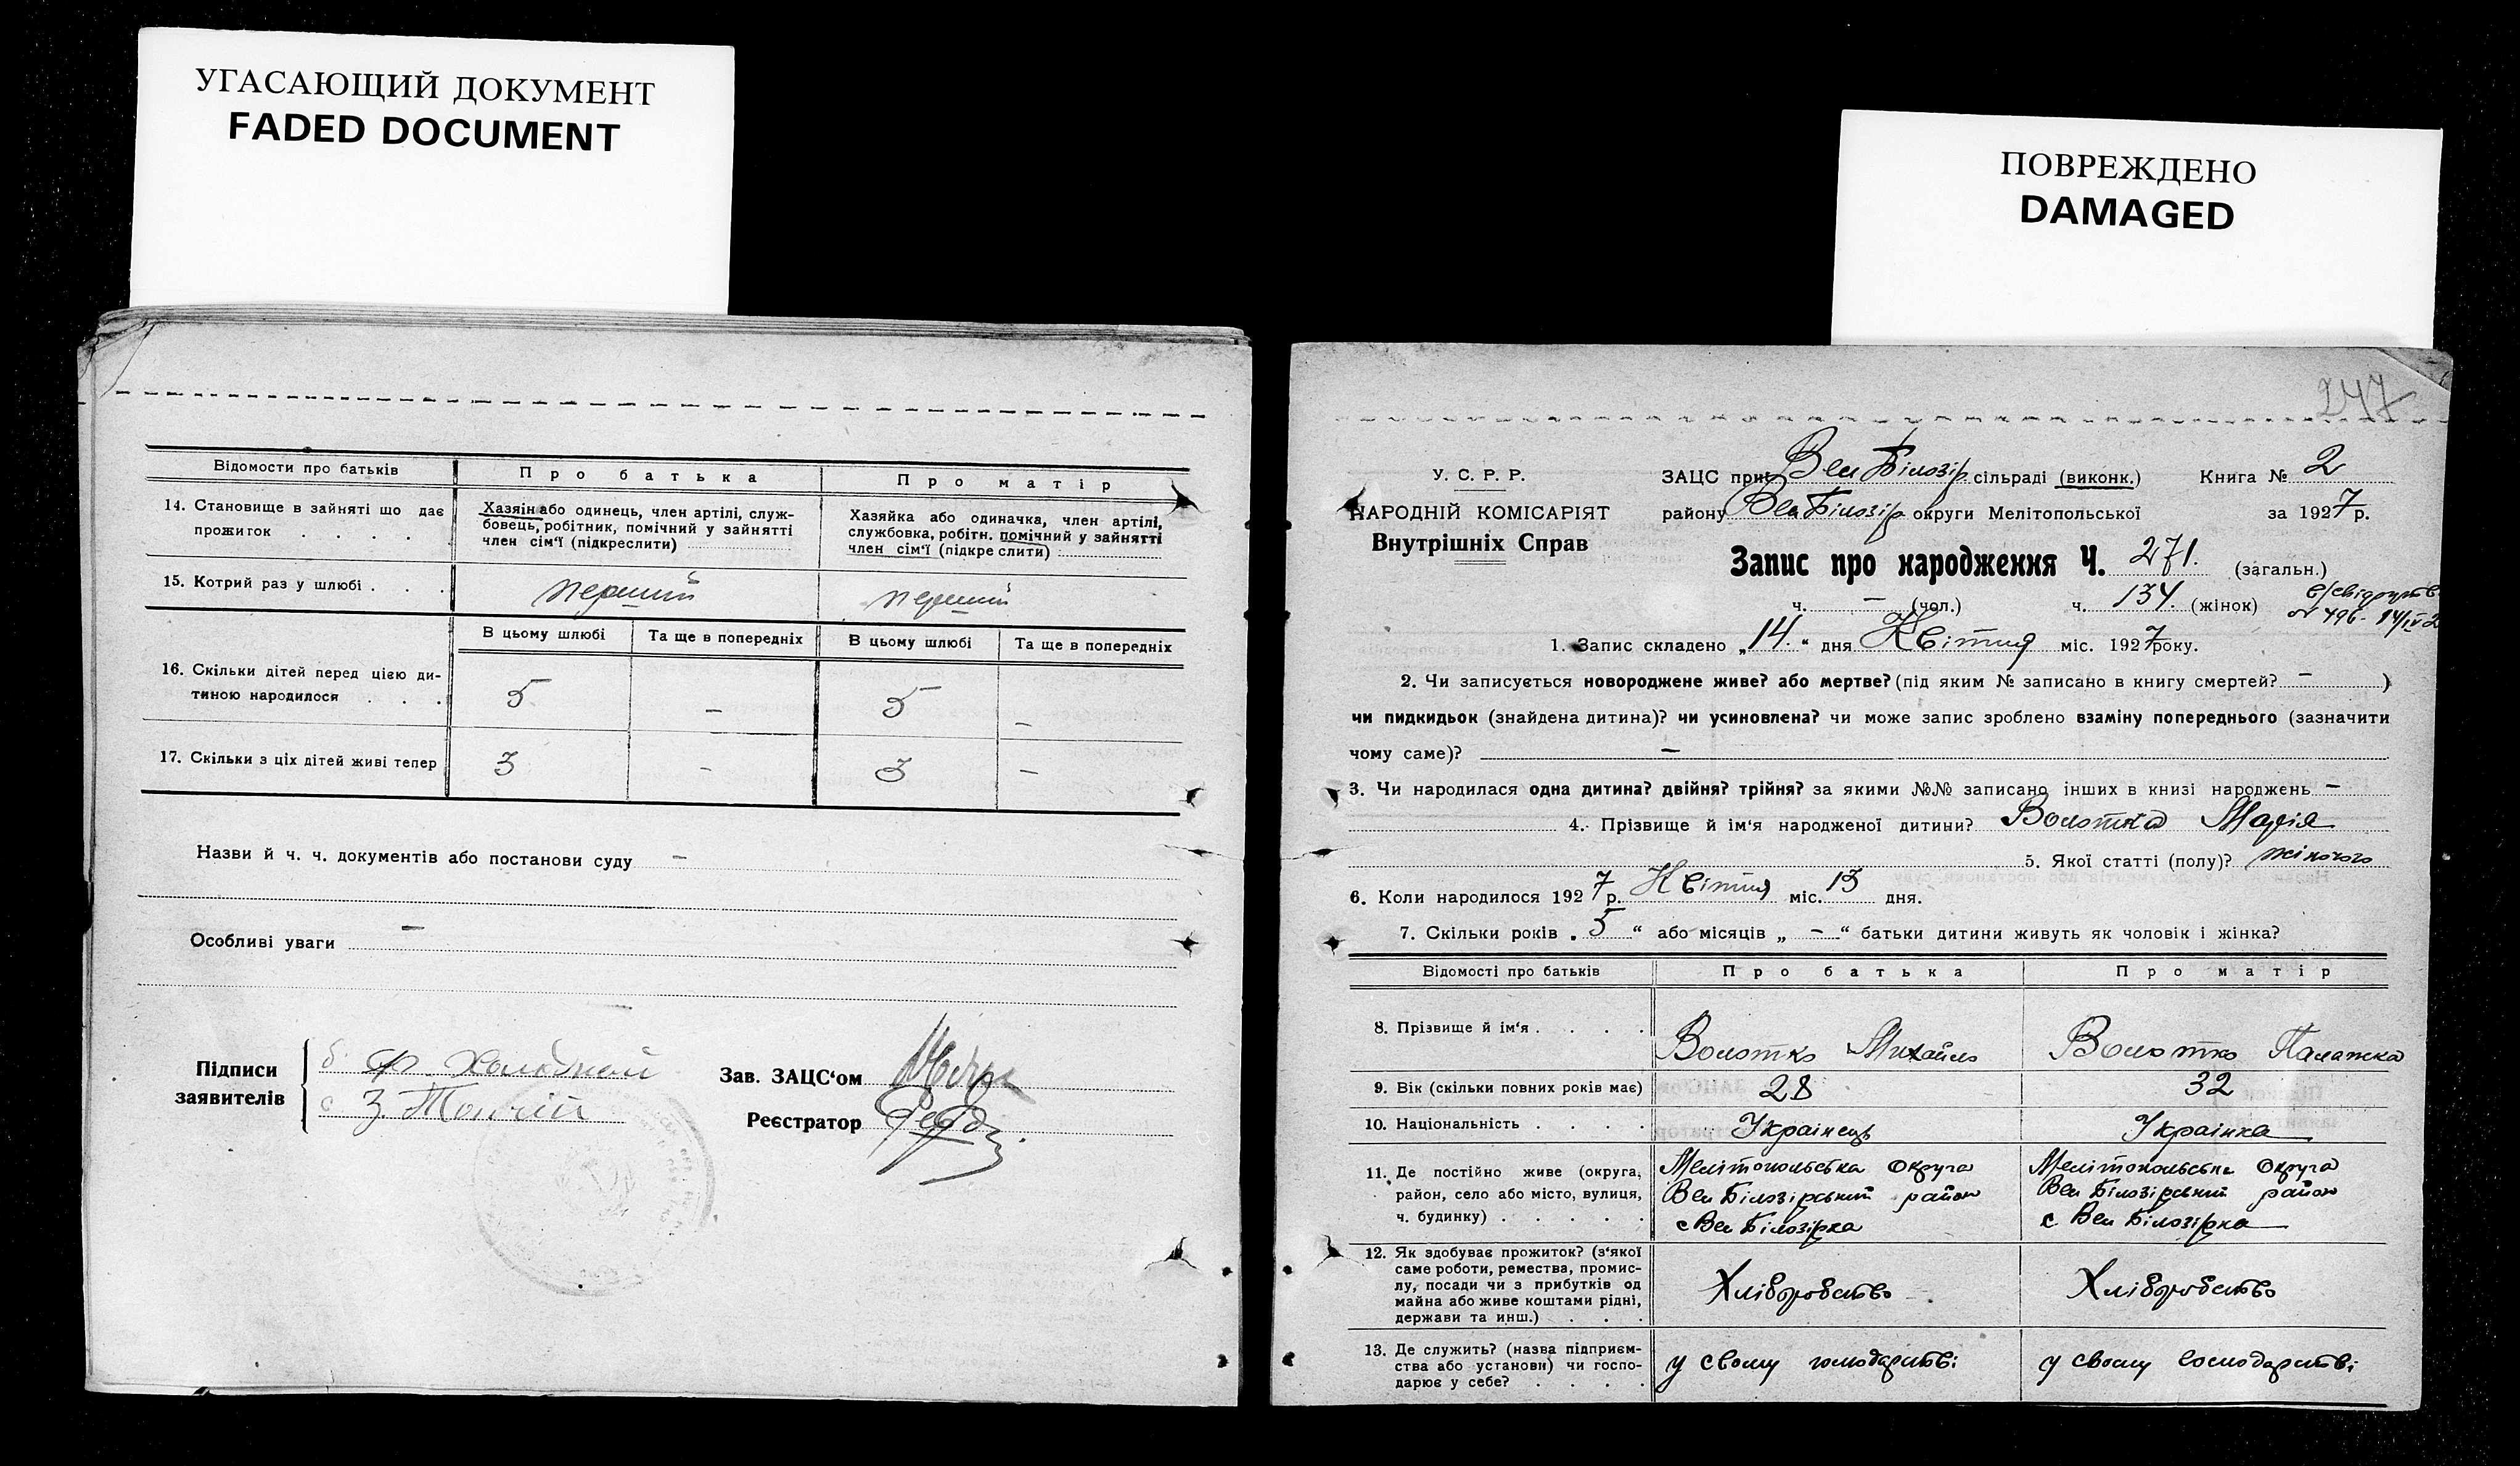 УГАСАЮЩИЙ ДОКУМЕНТ
FADED DOCUMENT
ПОВРЕЖДЕНО
DAMAGED
Відомости про батьків
Про батька
Про матір
14. Становище в зайняті що дає
прожиток . . . .
Хазяїн або одинець, член артілі, служ-
бовець, робітник, помічний у зайнятті
член сім'ї (підкреслити)
Хазяйка або одиначка, член артілі,
службовка, робітн. помічний у зайнятті
член сім'ї (підкре слити)
15. Котрий раз у шлюбі . . .
перший
перший
В цьому шлюбі
Та ще в попередніх
В цьому шлюбі
Та ще в попередніх
16. Скільки дітей перед цією ди-
тиною народилося . . .
5
–
5
–
17. Скільки з ціх дітей живі тепер
3
–
3
–
Назви й ч. ч. документів або постанови суду –
Особливі уваги –
Підписи
заявителів
Зав. ЗАЦС'ом
Реєстратор
247
У. С. Р. Р.
НАРОДНІЙ КОМІСАРІЯТ
Внутрішніх Справ
ЗАЦС при Вел Білозір. сільраді (виконк.) Книга № 2
району Вел Білозір. округи Мелітопольської за 1927 р.
Запис про народження Ч. 271. (загальн.)
ч. – (чол.) ч. 134. (жінок)
1. Запис складено „14.“ дня Квітня міс. 1927 року.
2. Чи записується новороджене живе? або мертве? (під яким № записано в книгу смертей? – )
чи пидкидьок (знайдена дитина)? чи усиновлена? чи може запис зроблено взаміну попереднього (зазначити
чому саме)? –
3. Чи народилася одна дитина? двійня? трійня? за якими №№ записано інших в книзі народжень –
4. Прізвище й ім'я народженої дитини? Волотка Марія
5. Якої статті (полу)? жіночого
6. Коли народилося 1927 р. Квітня міс. 13 дня.
7. Скільки років „5“ або місяців „–“ батьки дитини живуть як чоловік і жінка?
Відомості про батьків
Про батька
Про матір
8. Прізвище й ім'я . . . .
Волотко Михайло
Волотко Палажка
9. Вік (скільки повних років має)
28
32
10. Національність . . . .
Українець
Українка
11. Де постійно живе (округа,
район, село або місто, вулиця,
ч. будинку) . . . . .
Мелітопольська округа
Вел Білозірський район
с Вел Білозірка
Мелітопольська округа
Вел Білозірський район
с Вел Білозірка
12. Як здобуває прожиток? (з'якої
саме роботи, ремества, промис-
лу, посади чи з прибутків од
майна або живе коштами рідні,
держави та инш.) . . .
Хліборобство
Хліборобство
13. Де служить? (назва підприєм-
ства або установи) чи госпо-
дарює у себе? . . . .
у свому господарстві
у свому господарстві